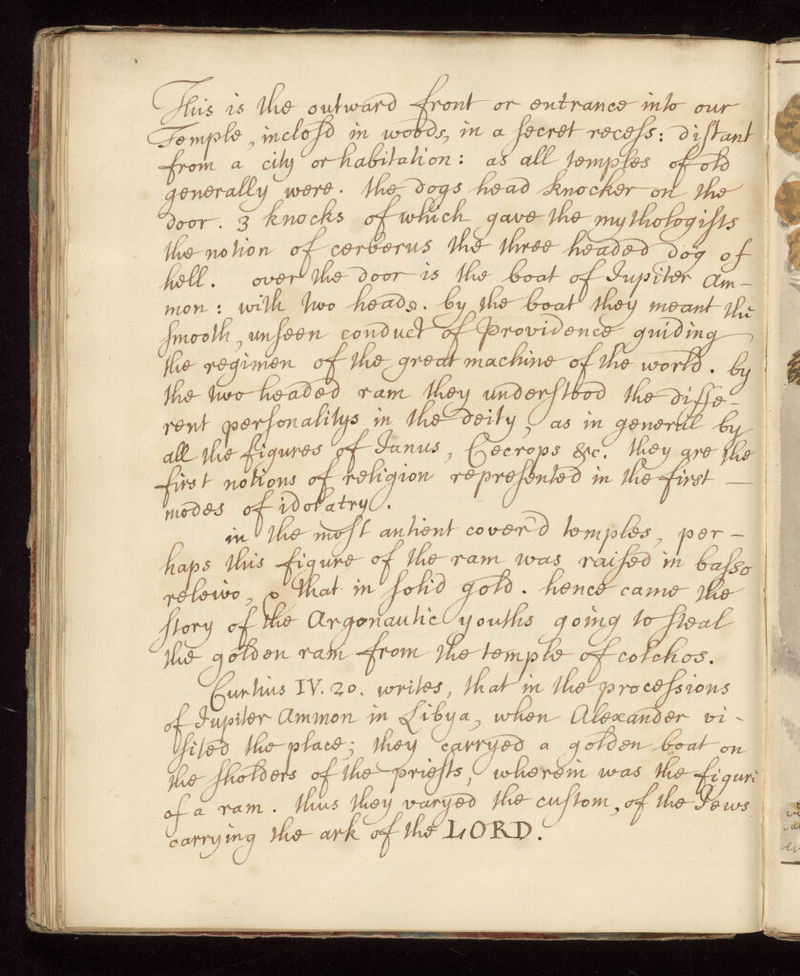 This is the outward front or entrance into our
Temple, inclosd in woods, in a secret recess: distant
from a city or habitation: as all temples of old
generally were. the dogs head knocker on the
door. 3 knocks of which gave the mythologists
the notion of cerberus the three headed dog of
hell. over the door is the boat of Jupiter Am-
mon: with two heads. by the boat they meant the
smooth, unseen conduct of Providence guiding
the regimen of the great machine of the world. by
the two headed ram they understood the diffe-
rent personalitys in the deity, as in general by
all the figures of Janus, Cecrops &c. they are the
first notions of religion represented in the first —
modes of idolatry.
in the most antient coverd temples, per-
haps this figure of the ram was raised in basso
releivo, & that in solid gold. hence came the
story of the Argonautic youths going to steal
the golden ram from the temple of colchos.
Curtius IV. 20. writes, that in the processions
of Jupiter Ammon in Libya, when Alexander vi-
sited the place; they carryed a golden boat on
the sholders of the priests, wherein was the figure
of a ram. thus they varyed the custom, of the Jews
carrying the ark of the LORD.